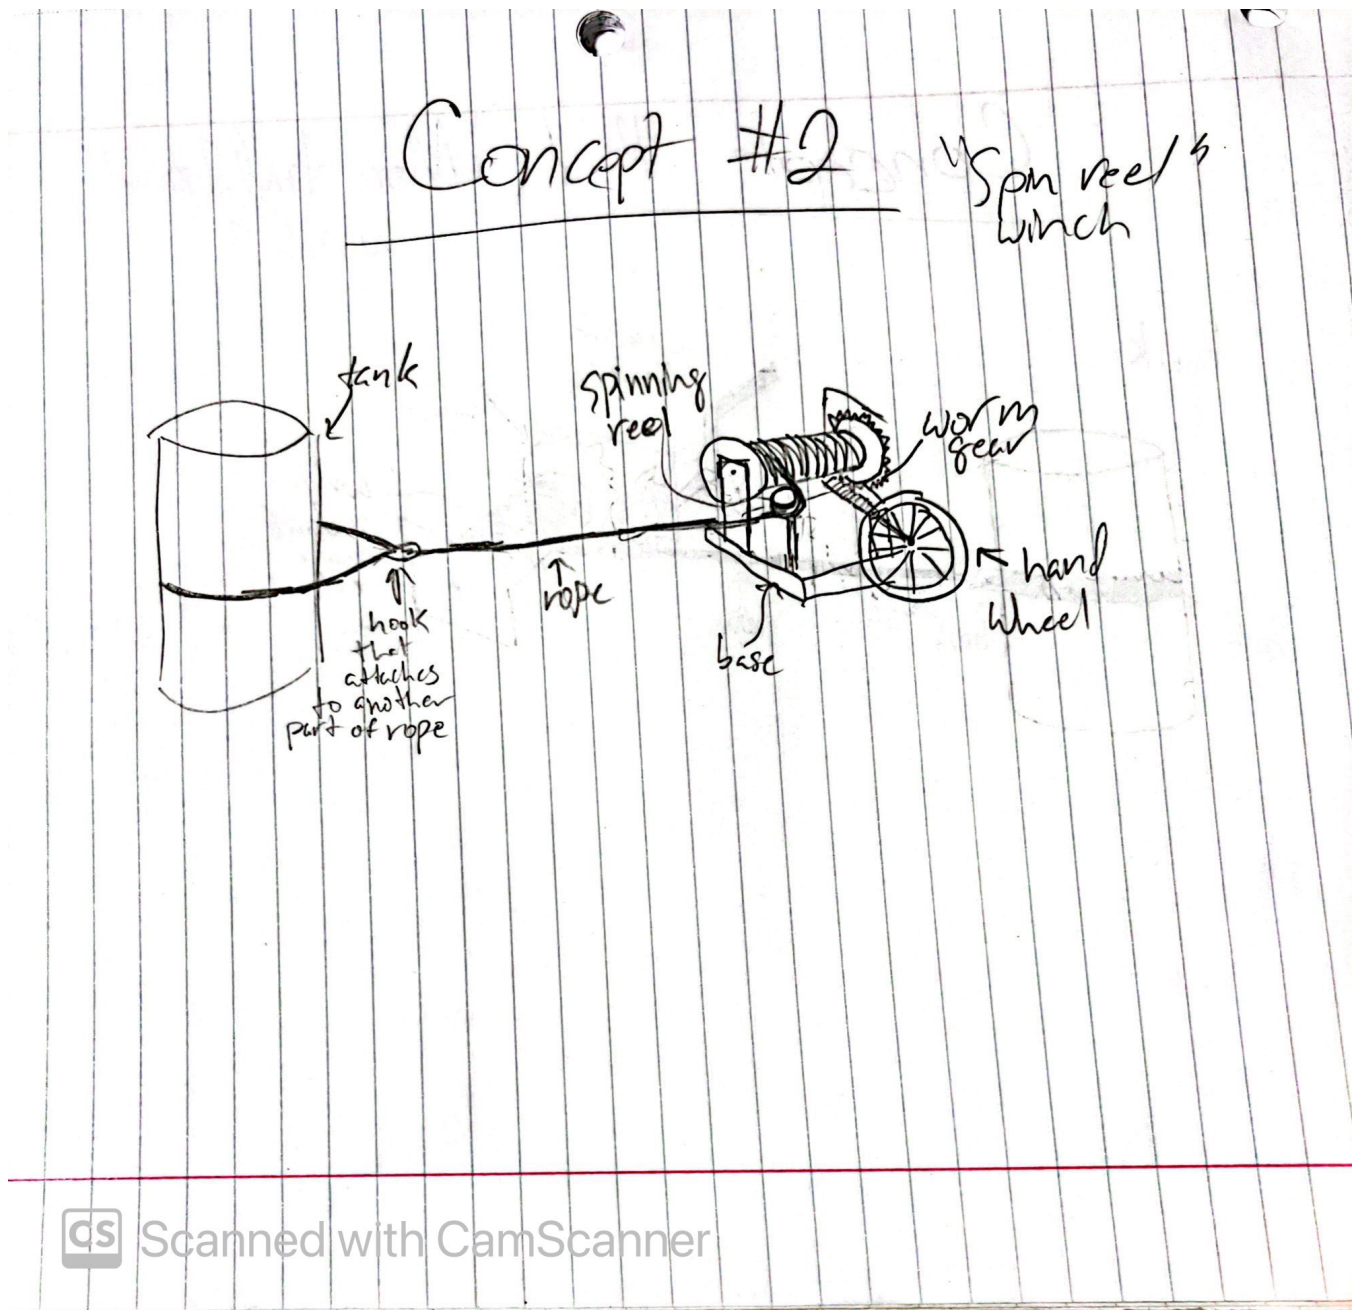 Concept #2
"Spin reel"
winch
tank
spinning
reel
worm
gear
hand
wheel
rope
base
hook
that
attaches
to another
part of rope
CS Scanned with CamScanner